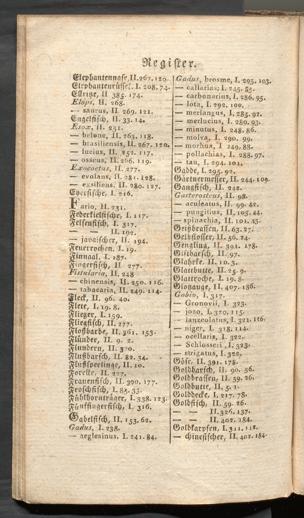 Register.
Elephantennase, II. 267. 120.
Elephantenrüssel, I. 208. 74.
Elritze, II. 385. 174.
Elops, II. 268.
— saurus, II. 269. 121.
Engelfisch, II. 33. 14.
Esox, II. 231.
— belone, II. 263. 118.
— brasiliensis, II. 267. 120.
— lucius, II. 251. 117.
— osseus, II. 266. 119.
Exocoetus, II. 277.
— evolans, II. 281. 128.
— exsiliens, II. 280. 127.
Fario, II. 231.
Federkielfische, I. 117.
Felsenfisch, I. 317.
— II. 191.
— javaischer, II. 194.
Feuerrochen, I. 19.
Finnaal, I. 187.
Fingerfisch, II. 277.
Fistularia, II. 248
— chinensis, II. 250. 116.
— tabacaria, II. 249. 114.
Fleck, II. 96. 40.
Flete, I. 19. 8.
Flieger, I. 159.
Fliegfisch, II. 277.
Floßbarbe, II. 361. 153.
Flünder, II. 9. 2.
Flundern, II. 370.
Flußbarsch, II. 82. 34.
Flußsperlinge, II. 10.
Forelle, II. 227.
Frauenfisch, II. 390. 177.
Froschfisch, I. 85. 35.
Fühlhornträger, I. 338. 123.
Fünffingerfisch, I. 316.
Gabelfisch, II. 153. 62.
Gadus, I. 238.
— aeglesinus, I. 241. 84.
Gadus, brosme, I. 295. 103.
— callarias, I. 245. 85.
— carbonarius, I. 286. 95.
— lota, I. 292. 100.
— merlangus, I. 285. 92.
— merlucius, I. 289. 93.
— minutus, I. 248. 86.
— molva, I. 290. 99.
— morhua, I. 249. 88.
— pollachius, I. 288. 97.
— tau, I. 294. 101.
Gadde, I. 295. 92.
Gärtnermesser, II. 244. 109.
Gangfisch, II. 242.
Gasterosteus, II. 98.
— aculeatus, II. 99. 42.
— pungitius, II. 105. 44.
— spinachia, II. 101. 43.
Geißbrassen, II. 63. 27.
Gelbflosser, II. 56. 24.
Gengling, II. 391. 178.
Giebel, II. 97.
Glahrke, II. 10. 3.
Glattbutte, II. 25. 9.
Glattroche, I. 19. 8.
Gobius, I. 317.
— Gronovii, I. 323.
— jozo, I. 320. 115.
— lanceolatus, I. 321. 116.
— niger, I. 318. 114.
— ocellaris, I. 322.
— Schlosseri, I. 323.
— strigatus, I. 322.
Göse, II. 391. 178.
Goldbarsch, II. 90. 36.
Goldbrassen, II. 59. 26.
Goldbutte, II. 5. 1.
Golddecke, I. 217. 78.
Goldfisch, II. 59. 26.
— II. 326. 137.
— II. 402. 184.
Goldkarpfen, I. 311. 112.
— chinesischer, II. 402. 184.